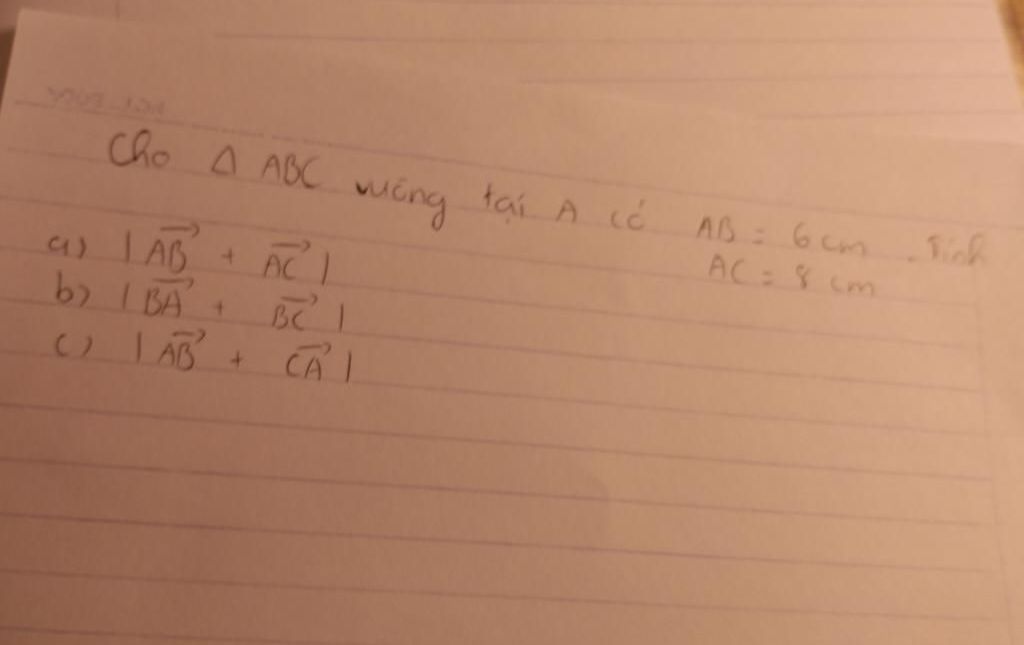 Cho Δ ABC vuông tại A có AB = 6 cm . Tính
AC = 8 cm
a) |\overrightarrow{AB} + \overrightarrow{AC}|
b) |\overrightarrow{BA} + \overrightarrow{BC}|
c) |\overrightarrow{AB} + \overrightarrow{CA}|